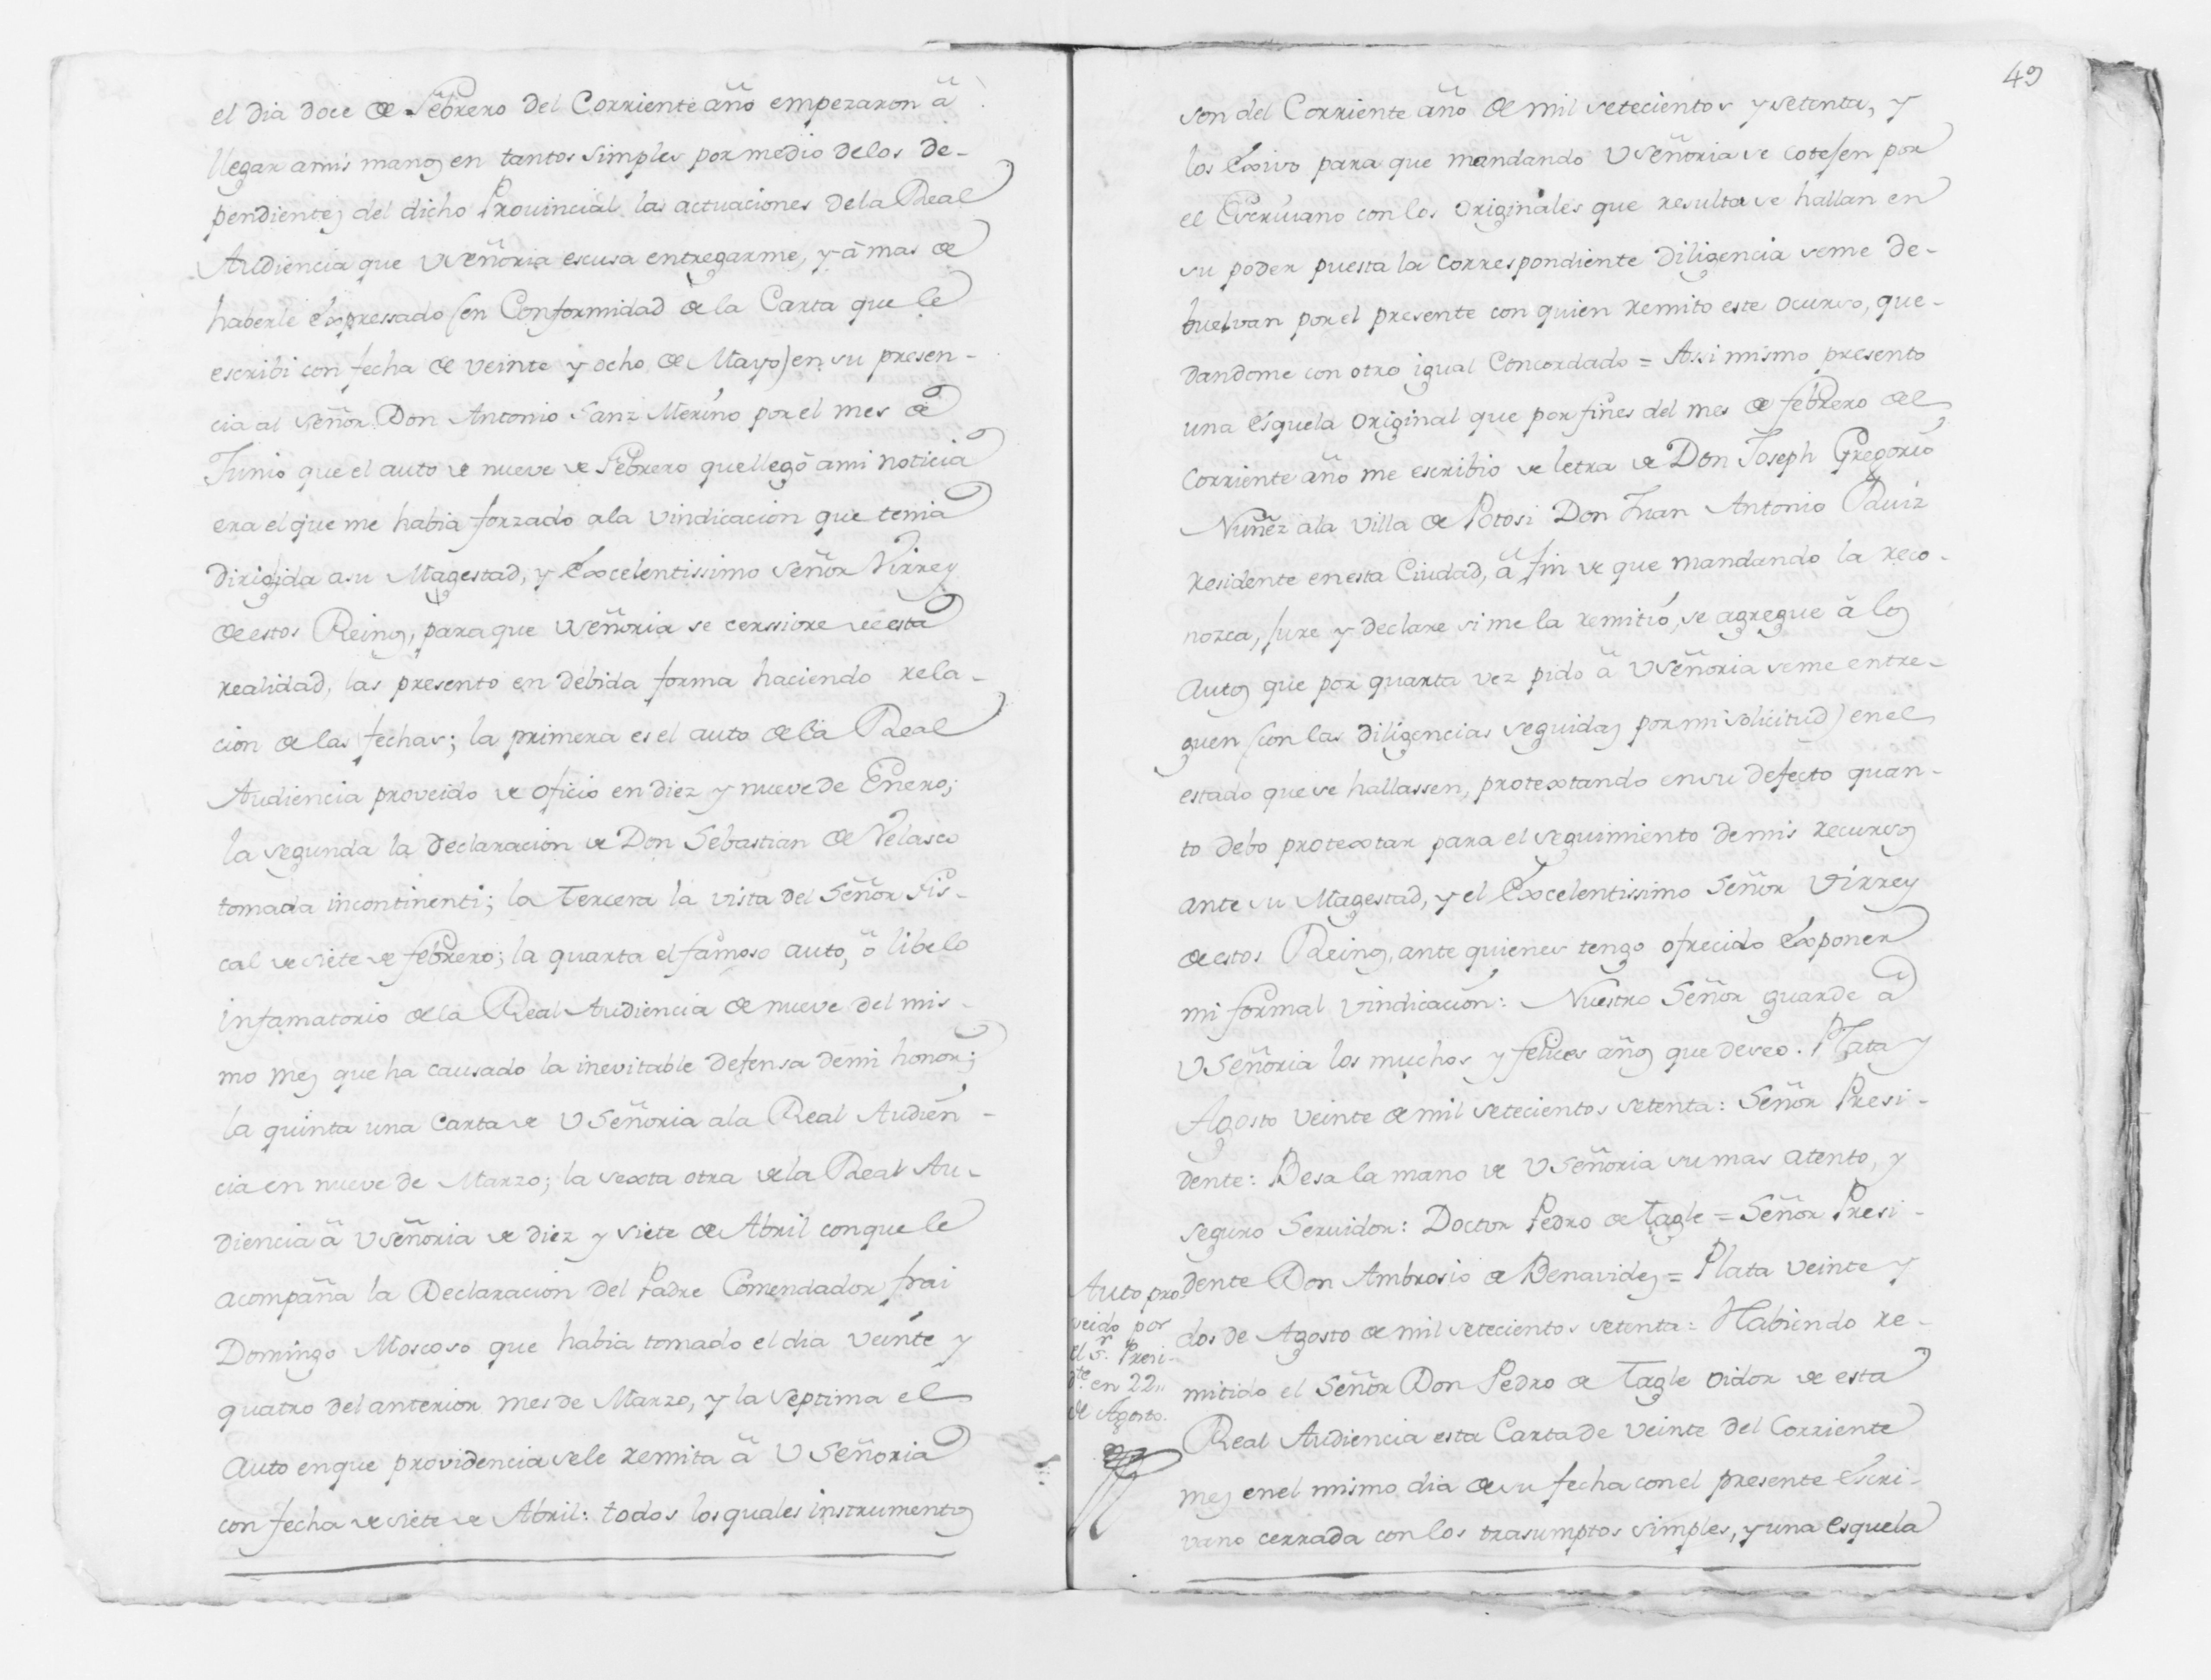 el dia doce de Febrero del Corriente año empezaron â
llegar a mis manos en tantos simples por medio de los de-
pendientes del dicho Prouincial las actuaciones de la Real
Audiencia que USeñoria escusa entregarme, y â mas de
haberle expressado (en Conformidad de la Carta que le
escribi con fecha de veinte y ocho de Mayo) en su presen-
cia al Señor Don Antonio Sanz Merino por el mes de
Junio que el auto de nueve de Febrero que llegô a mi noticia
era el que me habia forzado ala vindicacion que tenia
dirigida asu Magestad, y Excelentissimo Señor Virrey
de estos Reinos, para que USeñoria se cerssiore de esta
realidad, las presento en debida forma haciendo rela-
cion de las fechas; la primera es el auto de la Real
Audiencia proveido de oficio en diez y nueve de Enero;
la segunda la declaracion de Don Sebastian de Velasco
tomada incontinenti; la tercera la vista del Señor Fis-
cal de siete de febrero; la quarta el famoso auto, ô libelo
infamatorio de la Real Audiencia de nueve del mis-
mo mes que ha causado la inevitable defensa de mi honor;
la quinta una Carta de USeñoria ala Real Audien-
cia en nueve de Marzo; la sexta otra de la Real Au-
diencia â USeñoria de diez y siete de Abril con que le
acompaña la Declaracion del Padre Comendador frai
Domingo Moscoso que habia tomado el dia veinte y
quatro del anterior mes de Marzo, y la septima el
Auto en que providencia sele remita â USeñoria
con fecha de siete de Abril: todos los quales instrumentos
49
son del Corriente año de mil setecientos y setenta, y
los Exivo para que mandando USeñoria se cotejen por
el Escriuano con los originales que resulta se hallan en
su poder puesta la correspondiente diligencia seme de-
buelvan por el presente con quien remito este ocurso, que-
dandome con otro igual Concordado = Assi mismo presento
una esquela original que por fines del mes de febrero del
Corriente año me escribio de letra de Don Joseph Gregorio
Nuñez ala Villa de Potosi Don Juan Antonio Ruiz
residente en esta Ciudad, â fin de que mandando la reco-
nozca, jure y declare si me la remitió, se agregue â los
Autos que por quarta vez pido â USeñoria seme entre-
guen (con las diligencias seguidas por mi solicitud) en el
estado que se hallassen, protextando en su defecto quan-
to debo protextar para el seguimiento de mis recursos
ante su Magestad, y el Excelentissimo Señor Virrey
de estos Reinos, ante quienes tengo ofrecido exponer
mi formal vindicacion: Nuestro Señor guarde â
USeñoria los muchos y felices años que deseo. Plata y
Agosto veinte de mil setecientos setenta: Señor Presi-
dente: Besa la mano de USeñoria su mas atento, y
seguro Seruidor: Doctor Pedro de Tagle = Señor Presi-
dente Don Ambrosio de Benavides = Plata veinte y
dos de Agosto de mil setecientos setenta: Habiendo re-
mitido el Señor Don Pedro de Tagle oidor de esta
Real Audiencia esta Carta de veinte del Corriente
mes en el mismo dia de su fecha con el presente Escri-
vano cerrada con los trasumptos simples, y una esquela
Auto pro
veido por
el Sr. Presi-
dte. en 22,,
de Agosto.